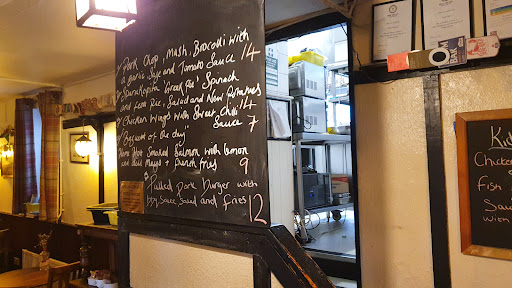 Pork Chop, Mash, Brocolli with
a garlic, Sage and Tomato Sauce 14
Spanakopita 'Greek Pie' Spinach
and Feta Pie, Salad and New Potatoes
14
Chicken Wings with Sweet Chilli
Sauce 7
"Baguette of the day"
Smoked Salmon with lemon
and Mayo + french fries 9
Pulled Pork Burger with
bbq sauce Salad and fries 12
Chicken
Fish
with